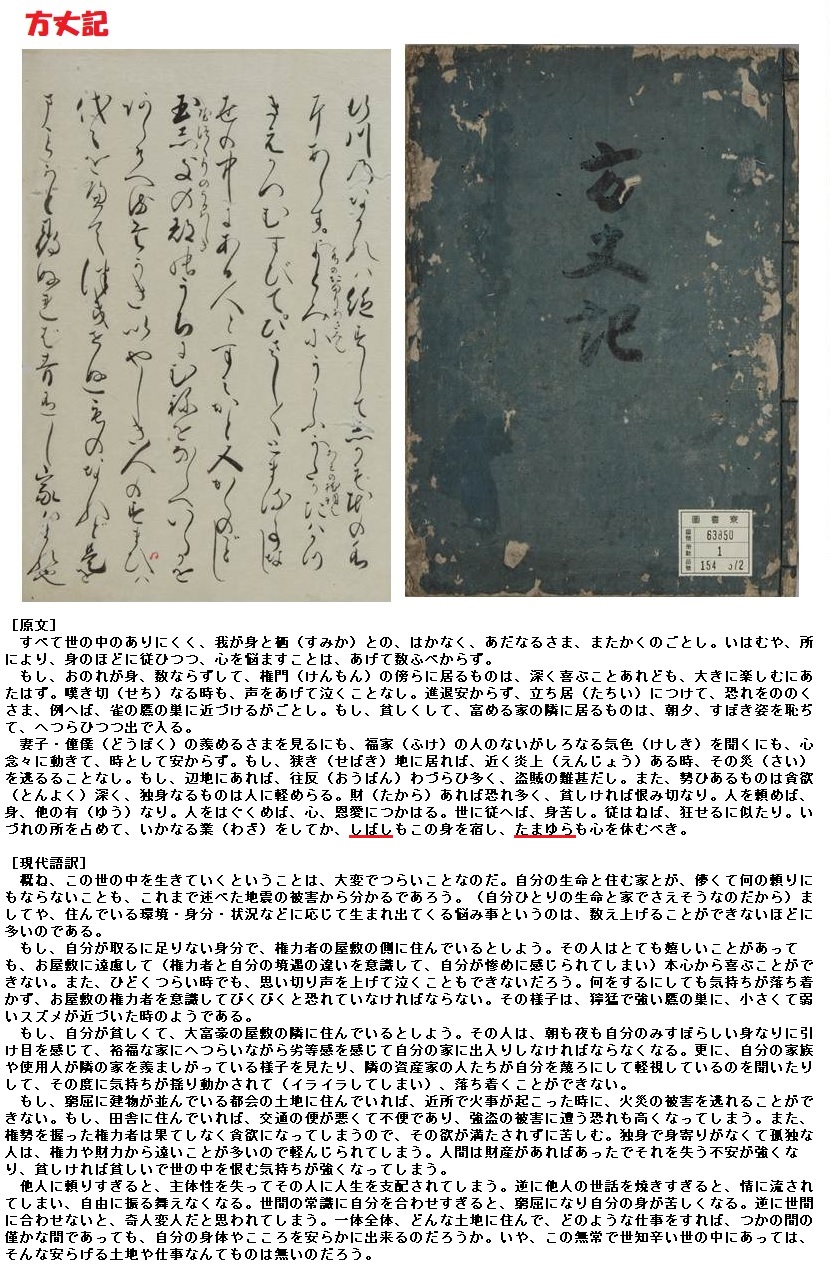 方丈記
方丈記
圖書寮
63850
1
154
［原文］
　すべて世の中のありにくく、我が身と栖（すみか）との、はかなく、あだなるさま、またかくのごとし。いはむや、所
により、身のほどに従ひつつ、心を悩ますことは、あげて数ふべからず。
　もし、おのれが身、数ならずして、権門（けんもん）の傍らに居るものは、深く喜ぶことあれども、大きに楽しむにあ
たはず。嘆き切（せち）なる時も、声をあげて泣くことなし。進退安からず、立ち居（たちい）につけて、恐れをののく
さま、例へば、雀の鷹の巣に近づけるがごとし。もし、貧しくして、富める家の隣に居るものは、朝夕、すぼき姿を恥ぢ
て、へつらひつつ出で入る。
　妻子・僮僕（どうぼく）の羨めるさまを見るにも、福家（ふけ）の人のないがしろなる気色（けしき）を聞くにも、心
念々に動きて、時として安からず。もし、狭き（せばき）地に居れば、近く炎上（えんじょう）ある時、その災（さい）
を逃るることなし。もし、辺地にあれば、往反（おうばん）わづらひ多く、盗賊の難甚だし。また、勢ひあるものは貪欲
（とんよく）深く、独身なるものは人に軽めらる。財（たから）あれば恐れ多く、貧しければ恨み切なり。人を頼めば、
身、他の有（ゆう）なり。人をはぐくめば、心、恩愛につかはる。世に従へば、身苦し。従はねば、狂せるに似たり。い
づれの所を占めて、いかなる業（わざ）をしてか、しばしもこの身を宿し、たまゆらも心を休むべき。
［現代語訳］
　概ね、この世の中を生きていくということは、大変でつらいことなのだ。自分の生命と住む家とが、儚くて何の頼りに
もならないことも、これまで述べた地震の被害から分かるであろう。（自分ひとりの生命と家でさえそうなのだから）ま
してや、住んでいる環境・身分・状況などに応じて生まれ出てくる悩み事というのは、数え上げることができないほどに
多いのである。
　もし、自分が取るに足りない身分で、権力者の屋敷の側に住んでいるとしよう。その人はとても嬉しいことがあって
も、お屋敷に遠慮して（権力者と自分の境遇の違いを意識して、自分が惨めに感じられてしまい）本心から喜ぶことがで
きない。また、ひどくつらい時でも、思い切り声を上げて泣くこともできないだろう。何をするにしても気持ちが落ち着
かず、お屋敷の権力者を意識してびくびくと恐れていなければならない。その様子は、獰猛で強い鷹の巣に、小さくて弱
いスズメが近づいた時のようである。
　もし、自分が貧しくて、大富豪の屋敷の隣に住んでいるとしよう。その人は、朝も夜も自分のみすぼらしい身なりに引
け目を感じて、裕福な家にへつらいながら劣等感を感じて自分の家に出入りしなければならなくなる。更に、自分の家族
や使用人が隣の家を羨ましがっている様子を見たり、隣の資産家の人たちが自分を蔑ろにして軽視しているのを聞いたり
して、その度に気持ちが揺り動かされて（イライラしてしまい）、落ち着くことができない。
　もし、窮屈に建物が並んでいる都会の土地に住んでいれば、近所で火事が起こった時に、火災の被害を逃れることがで
きない。もし、田舎に住んでいれば、交通の便が悪くて不便であり、強盗の被害に遭う恐れも高くなってしまう。また、
権勢を握った権力者は果てしなく貪欲になってしまうので、その欲が満たされずに苦しむ。独身で身寄りがなくて孤独な
人は、権力や財力から遠いことが多いので軽んじられてしまう。人間は財産があればあったでそれを失う不安が強くな
り、貧しければ貧しいで世の中を恨む気持ちが強くなってしまう。
　他人に頼りすぎると、主体性を失ってその人に人生を支配されてしまう。逆に他人の世話を焼きすぎると、情に流され
てしまい、自由に振る舞えなくなる。世間の常識に自分を合わせすぎると、窮屈になり自分の身が苦しくなる。逆に世間
に合わせないと、奇人変人だと思われてしまう。一体全体、どんな土地に住んで、どのような仕事をすれば、つかの間の
僅かな間であっても、自分の身体やこころを安らかに出来るのだろうか。いや、この無常で世知辛い世の中にあっては、
そんな安らげる土地や仕事なんてものは無いのだろう。